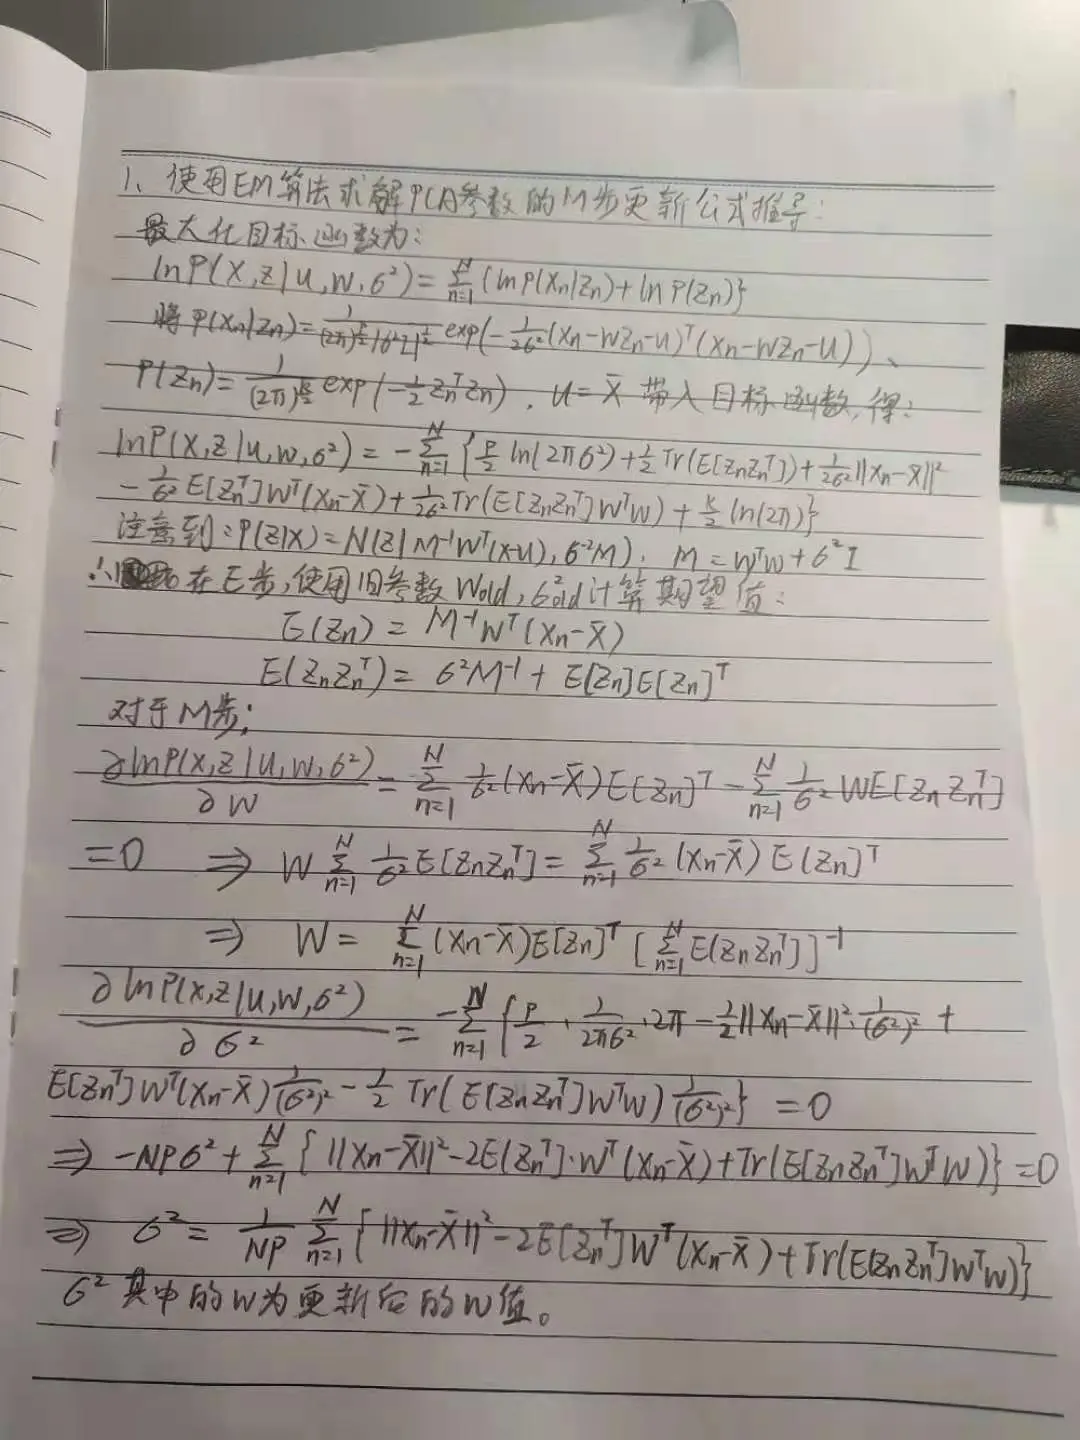 1、使用EM算法求解PCA参数的M步更新公式推导:
最大化目标函数为:
lnP(X,Z|u,W,6²)=∑_{n=1}^{N}{lnP(Xn|Zn)+lnP(Zn)}
将P(Xn|Zn)=\frac{1}{(2π)^{\frac{P}{2}}|6²I|^{\frac{1}{2}}}exp(-\frac{1}{26²}(Xn-WZn-u)^T(Xn-WZn-u))、
P(Zn)=\frac{1}{(2π)^{\frac{k}{2}}}exp(-\frac{1}{2}Zn^TZn),u=X̄ 带入目标函数,得:
lnP(X,Z|u,W,6²)=-∑_{n=1}^{N}{\frac{P}{2}ln(2π6²)+\frac{1}{2}Tr(E[ZnZn^T])+\frac{1}{26²}||Xn-X̄||²
-\frac{1}{6²}E[Zn^T]W^T(Xn-X̄)+\frac{1}{26²}Tr(E[ZnZn^T]W^TW)+\frac{k}{2}ln(2π)}
注意到:P(Z|X)=N(Z|M⁻¹W^T(X-u),6²M),M=W^TW+6²I
∴在E步,使用旧参数Wold,6²old计算期望值:
E(Zn)=M⁻¹W^T(Xn-X̄)
E(ZnZn^T)=6²M⁻¹+E[Zn]E[Zn]^T
对于M步:
\frac{∂lnP(X,Z|u,W,6²)}{∂W}=∑_{n=1}^{N}\frac{1}{6²}(Xn-X̄)E[Zn]^T-∑_{n=1}^{N}\frac{1}{6²}WE[ZnZn^T]
=0 ⇒ W∑_{n=1}^{N}\frac{1}{6²}E[ZnZn^T]=∑_{n=1}^{N}\frac{1}{6²}(Xn-X̄)E(Zn]^T
⇒ W=∑_{n=1}^{N}(Xn-X̄)E[Zn]^T[∑_{n=1}^{N}E(ZnZn^T]]⁻¹
\frac{∂lnP(X,Z|u,W,6²)}{∂6²}=-∑_{n=1}^{N}{\frac{P}{2}·\frac{1}{2π6²}·2π-\frac{1}{2}||Xn-X̄||²·\frac{1}{(6²)²}+
E[Zn^T]W^T(Xn-X̄)\frac{1}{(6²)²}-\frac{1}{2}Tr(E[ZnZn^T]W^TW)\frac{1}{(6²)²}}=0
⇒ -NP6²+∑_{n=1}^{N}{||Xn-X̄||²-2E(Zn^T]·W^T(Xn-X̄)+Tr(E[ZnZn^T]W^TW)}=0
⇒ 6²=\frac{1}{NP}∑_{n=1}^{N}{||Xn-X̄||²-2E[Zn^T]W^T(Xn-X̄)+Tr(E(ZnZn^T]W^TW)}
6²其中的W为更新后的W值。